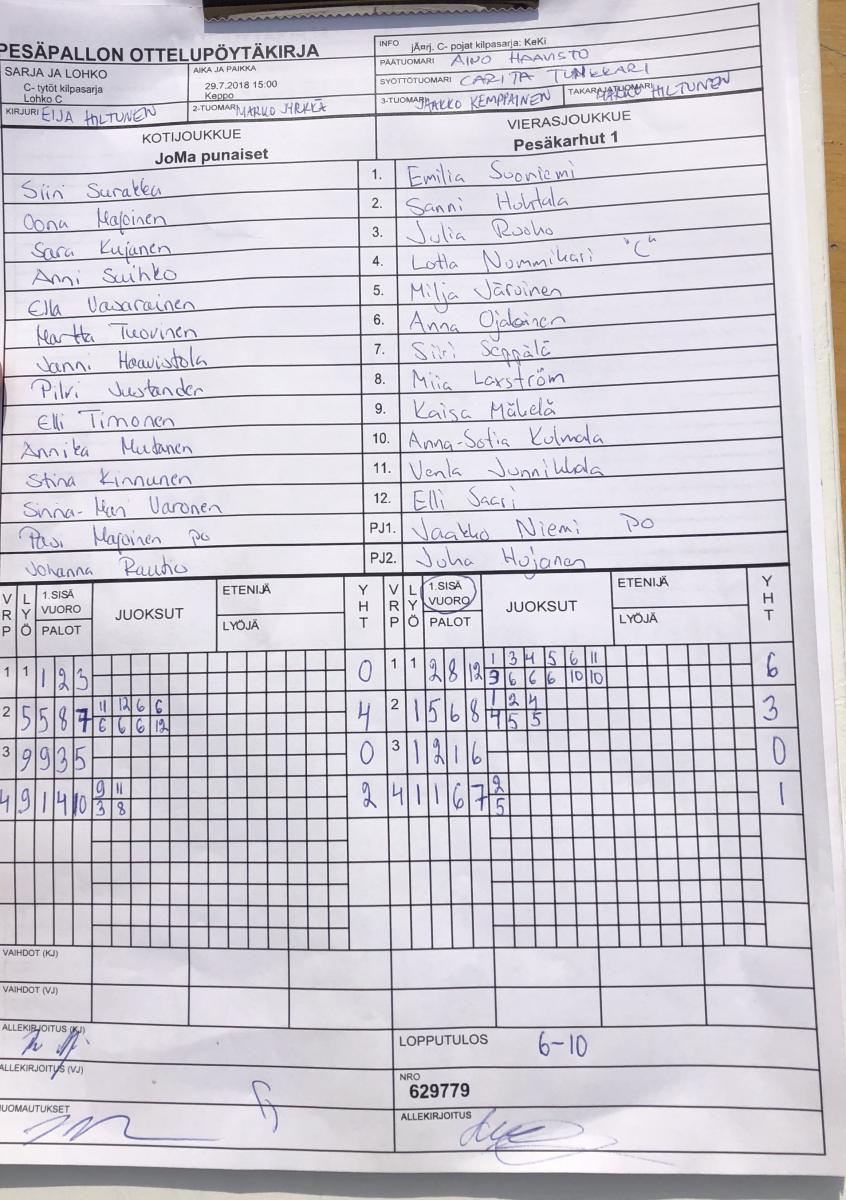 PESÄPALLON OTTELUPÖYTÄKIRJA
INFO jÃ¤rj. C- pojat kilpasarja: KeKi
PÄÄTUOMARI AINO HAAVISTO
SARJA JA LOHKO
C- tytöt kilpasarja
Lohko C
AIKA JA PAIKKA
29.7.2018 15:00
Keppo
SYÖTTÖTUOMARI CARITA TUNKKARI
KIRJURI EIJA HILTUNEN 2-TUOMARI MARKO JYRKKÄ 3-TUOMARI JAAKKO KEMPPAINEN TAKARAJATUOMARI MARKO HILTUNEN
KOTIJOUKKUE VIERASJOUKKUE
JoMa punaiset Pesäkarhut 1
Siiri Surakka 1. Emilia Suoniemi
Oona Majoinen 2. Sanni Huhtala
Sara Kujanen 3. Julia Ruoho
Anni Suihko 4. Lotta Nummikari "C"
Ella Vasarainen 5. Milja Järvinen
Martta Tuovinen 6. Anna Ojalainen
Janni Haavistola 7. Siiri Seppälä
Pilvi Justander 8. Miia Laxström
Elli Timonen 9. Kaisa Mäkelä
Annika Mutanen 10. Anna-Sofia Kulmala
Stina Kinnunen 11. Venla Junnikkala
Sinna-Mari Varonen 12. Elli Saari
Pasi Majoinen PO PJ1. Jaakko Niemi PO
Johanna Rautio PJ2. Juha Hojanen
VRP LYÖ 1.SISÄ VUORO PALOT JUOKSUT ETENIJÄ LYÖJÄ YHT VRP LYÖ 1.SISÄ VUORO PALOT JUOKSUT ETENIJÄ LYÖJÄ YHT
1 1 1 2 3 0 1 1 2 8 12 1 3 4 5 6 11 6
3 6 6 6 10 10
2 5 5 8 7 11 12 6 6 4 2 1 5 6 8 1 2 4 3
6 6 6 12 4 5 5
3 9 9 3 5 0 3 1 2 1 6 0
4 9 1 4 10 9 11 2 4 1 1 6 7 2 1
3 8 5
VAIHDOT (KJ)
VAIHDOT (VJ)
ALLEKIRJOITUS (KJ)
LOPPUTULOS 6-10
ALLEKIRJOITUS (VJ)
NRO
629779
HUOMAUTUKSET
ALLEKIRJOITUS